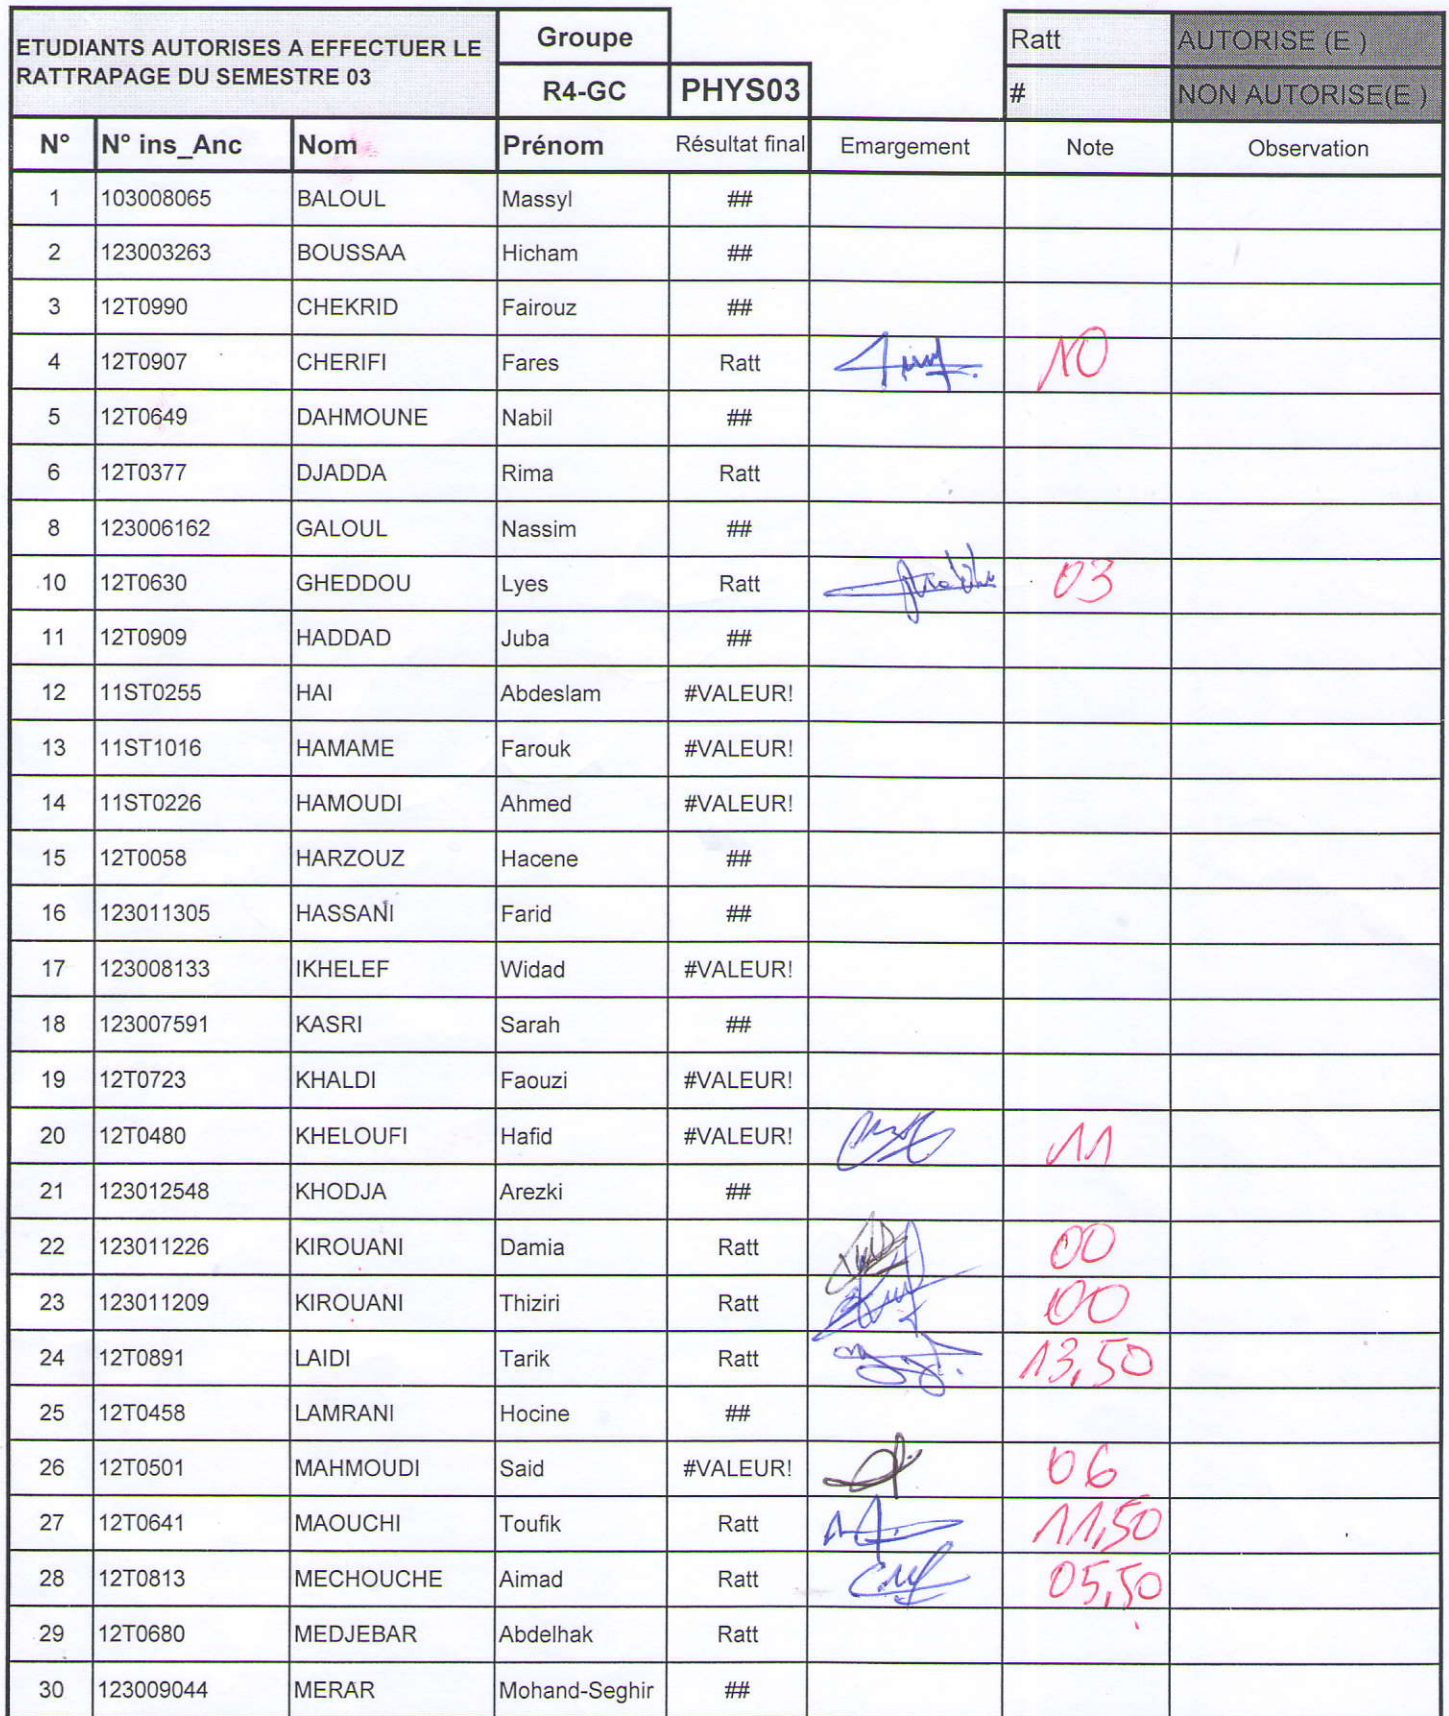 ETUDIANTS AUTORISES A EFFECTUER LE RATTRAPAGE DU SEMESTRE 03
Groupe
R4-GC PHYS03
Ratt AUTORISE (E )
# NON AUTORISE(E )
N° N° ins_Anc Nom Prénom Résultat final Emargement Note Observation
1 103008065 BALOUL Massyl ##
2 123003263 BOUSSAA Hicham ##
3 12T0990 CHEKRID Fairouz ##
4 12T0907 CHERIFI Fares Ratt 10
5 12T0649 DAHMOUNE Nabil ##
6 12T0377 DJADDA Rima Ratt
8 123006162 GALOUL Nassim ##
10 12T0630 GHEDDOU Lyes Ratt 03
11 12T0909 HADDAD Juba ##
12 11ST0255 HAI Abdeslam #VALEUR!
13 11ST1016 HAMAME Farouk #VALEUR!
14 11ST0226 HAMOUDI Ahmed #VALEUR!
15 12T0058 HARZOUZ Hacene ##
16 123011305 HASSANI Farid ##
17 123008133 IKHELEF Widad #VALEUR!
18 123007591 KASRI Sarah ##
19 12T0723 KHALDI Faouzi #VALEUR!
20 12T0480 KHELOUFI Hafid #VALEUR! 11
21 123012548 KHODJA Arezki ##
22 123011226 KIROUANI Damia Ratt 00
23 123011209 KIROUANI Thiziri Ratt 00
24 12T0891 LAIDI Tarik Ratt 13,50
25 12T0458 LAMRANI Hocine ##
26 12T0501 MAHMOUDI Said #VALEUR! 06
27 12T0641 MAOUCHI Toufik Ratt 11,50
28 12T0813 MECHOUCHE Aimad Ratt 05,50
29 12T0680 MEDJEBAR Abdelhak Ratt
30 123009044 MERAR Mohand-Seghir ##